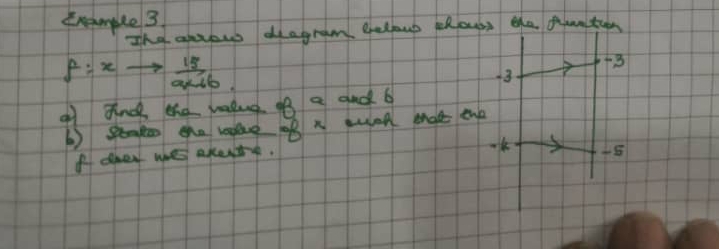 Example 3.
The arrow diagram below shows the function
f : x → 15
ax+b
a) Find the value of a and b
b) State the value of x such that the
f does not
-3
-3
-5